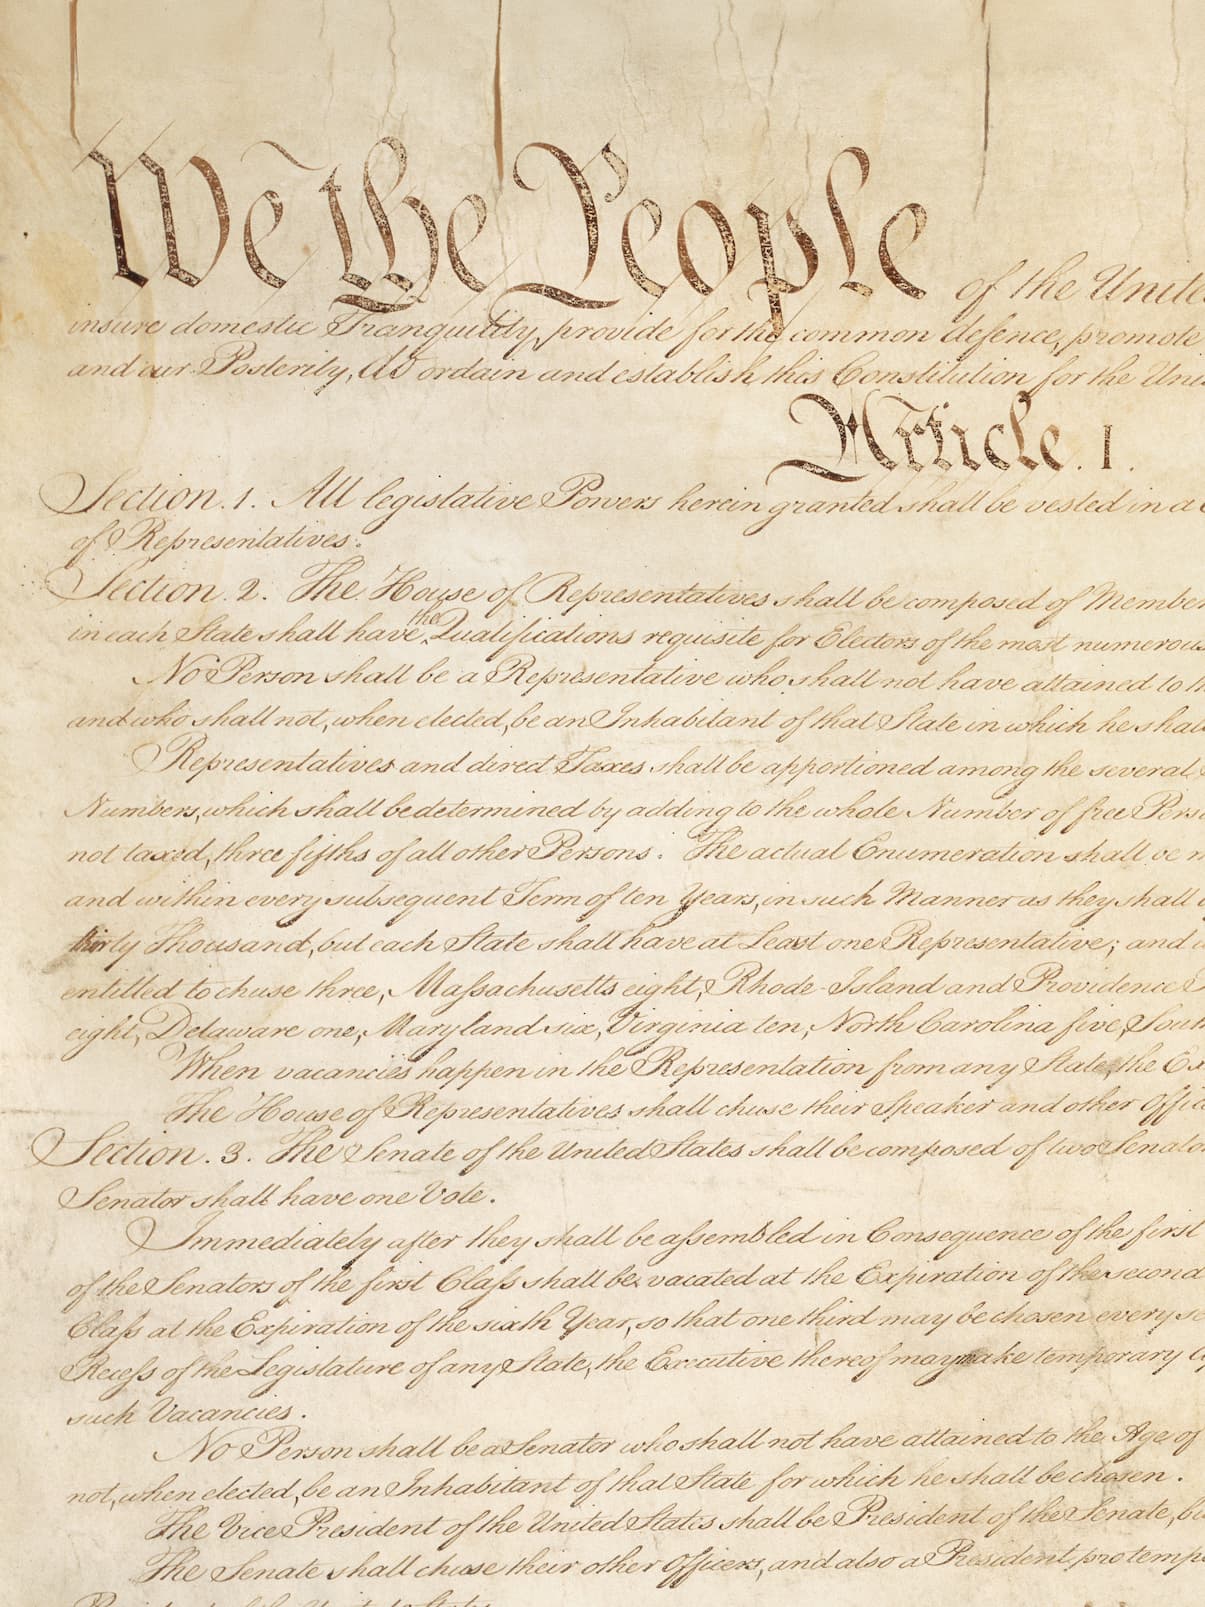 We the People of the Unite
insure domestic Tranquility, provide for the common defence, promote
and our Posterity, do ordain and establish this Constitution for the Uni
Article. I.
Section. 1. All legislative Powers herein granted shall be vested in a
of Representatives.
Section. 2. The House of Representatives shall be composed of Member
in each State shall have the Qualifications requisite for Electors of the most numerous
No Person shall be a Representative who shall not have attained to th
and who shall not, when elected, be an Inhabitant of that State in which he shal
Representatives and direct Taxes shall be apportioned among the several
Numbers, which shall be determined by adding to the whole Number of free Perso
not taxed, three fifths of all other Persons. The actual Enumeration shall be m
and within every subsequent Term of ten Years, in such Manner as they shall
thirty Thousand, but each State shall have at Least one Representative; and
entitled to chuse three, Massachusetts eight, Rhode-Island and Providence
eight, Delaware one, Maryland six, Virginia ten, North Carolina five, Sout
When vacancies happen in the Representation from any State, the Ex
The House of Representatives shall chuse their Speaker and other Offic
Section. 3. The Senate of the United States shall be composed of two Senato
Senator shall have one Vote.
Immediately after they shall be assembled in Consequence of the first
of the Senators of the first Class shall be vacated at the Expiration of the second
Class at the Expiration of the sixth Year, so that one third may be chosen every se
Recess of the Legislature of any State, the Executive thereof may make temporary Ap
such Vacancies.
No Person shall be a Senator who shall not have attained to the Age of
not, when elected, be an Inhabitant of that State for which he shall be chosen.
The Vice President of the United States shall be President of the Senate, bu
The Senate shall chuse their other Officers, and also a President pro temp